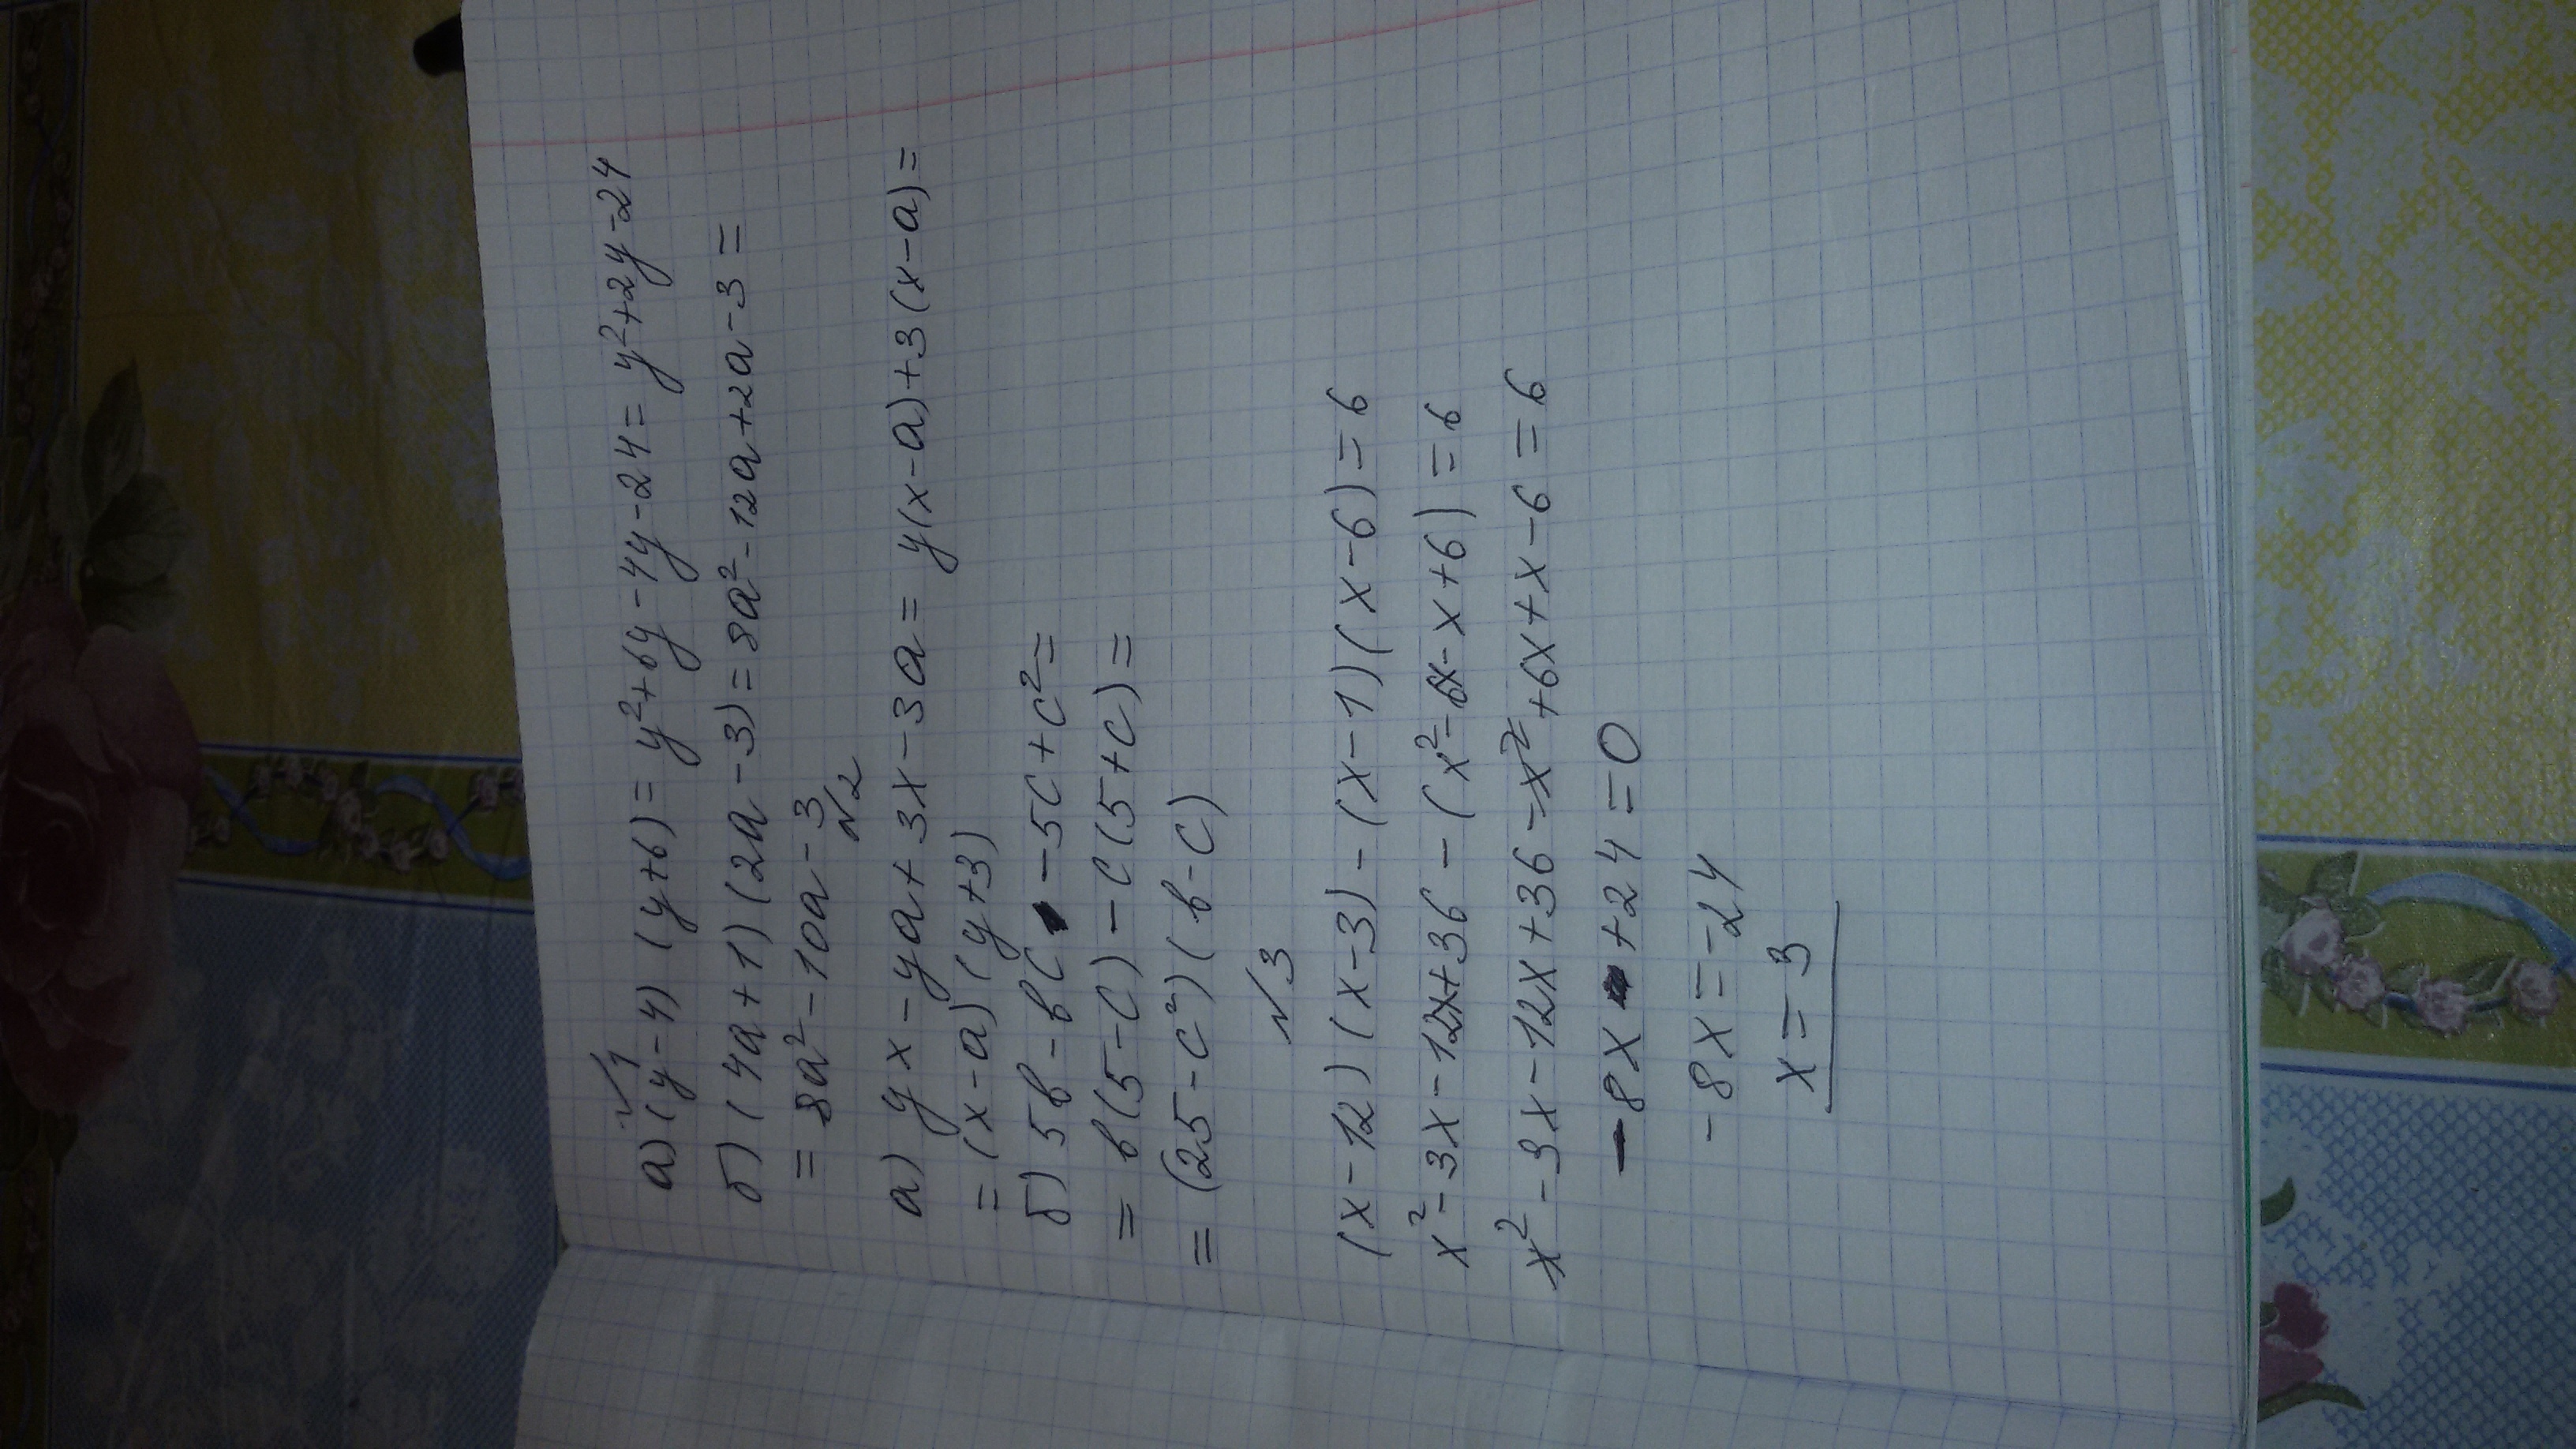 №1
а) (y-4)(y+6)=y²+6y-4y-24=y²+2y-24
б) (4a+1)(2a-3)=8a²-12a+2a-3=
=8a²-10a-3
№2
а) yx-ya+3x-3a=y(x-a)+3(x-a)=
=(x-a)(y+3)
б) 5в-вc-5c+c²=
=в(5-c)-c(5+c)=
=(25-c²)(в-c)
№3
(x-12)(x-3)-(x-1)(x-6)=6
x²-3x-12x+36-(x²-6x-x+6)=6
x²-3x-12x+36-x²+6x+x-6=6
-8x+24=0
-8x=-24
x=3